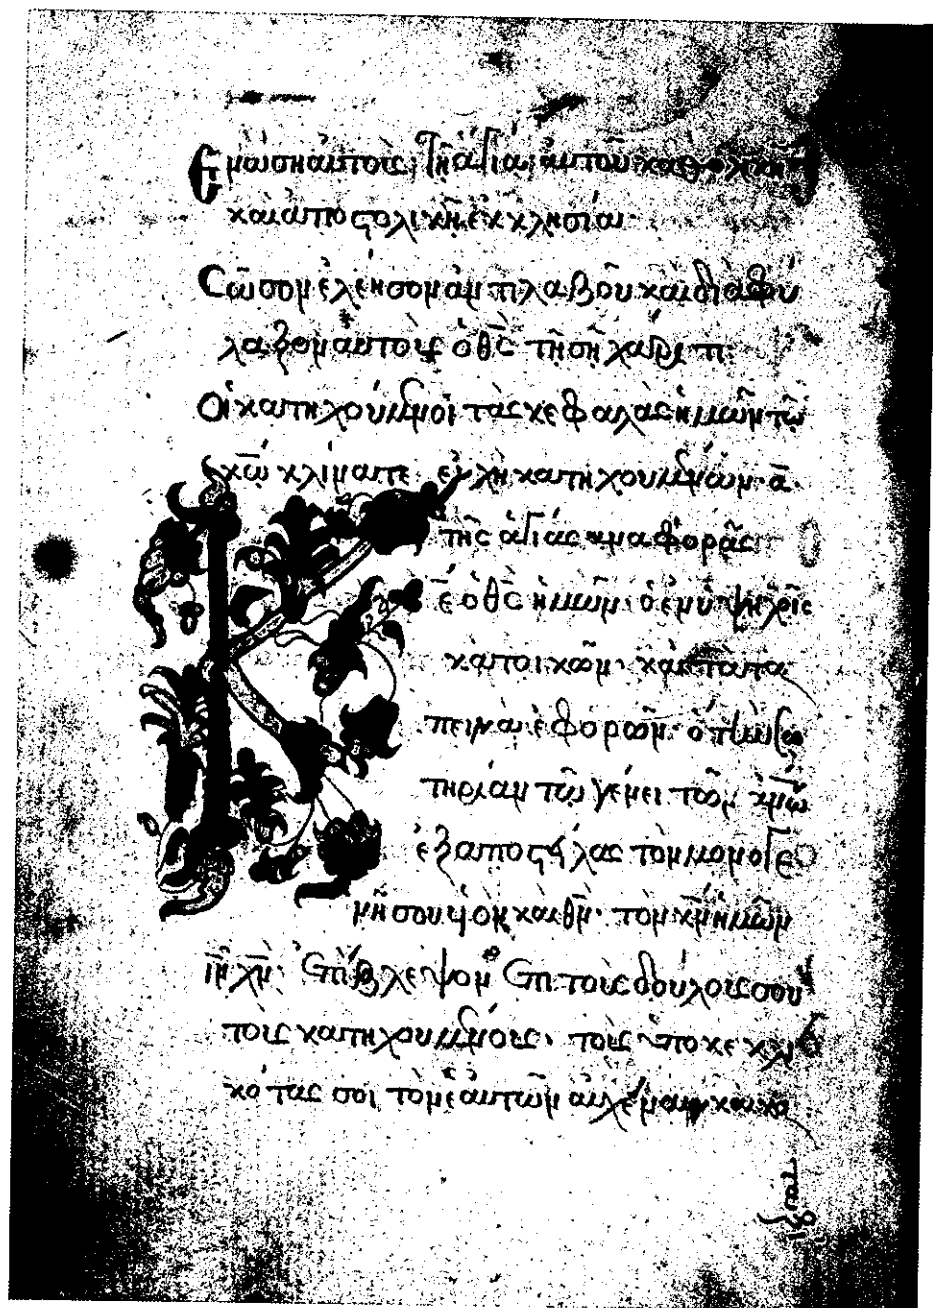 Ἑνώσῃ αὐτοὺς τῇ ἁγίᾳ αὐτοῦ καθολικῇ
καὶ ἀποστολικῇ ἐκκλησίᾳ
Σῶσον ἐλέησον ἀντιλαβοῦ καὶ διαφύ
λαξον αὐτοὺς ὁ θς τῇ σῇ χάριτι
Οἱ κατηχούμενοι τὰς κεφαλὰς ἡμῶν τῷ
κῶ κλίνατε εὐχὴ κατηχουμένων
τῆς ἁγίας ἀναφορᾶς
Κε ὁ θς ἡμῶν ὁ ἐν ὑψηλοῖς
κατοικῶν καὶ τὰ τα
πεινὰ ἐφορῶν ὁ τὴν σω
τηρίαν τῷ γένει τῶν ἀνων
ἐξαποστείλας τὸν μονογε
νῆ σου υἱὸν καὶ θν τὸν κν ἡμῶν
ιν χν Ἐπίβλεψον ἐπὶ τοὺς δούλους σου
τοὺς κατηχουμένους τοὺς ὑποκεκλι
κότας σοι τὸν ἑαυτῶν αὐχένα καὶ κα